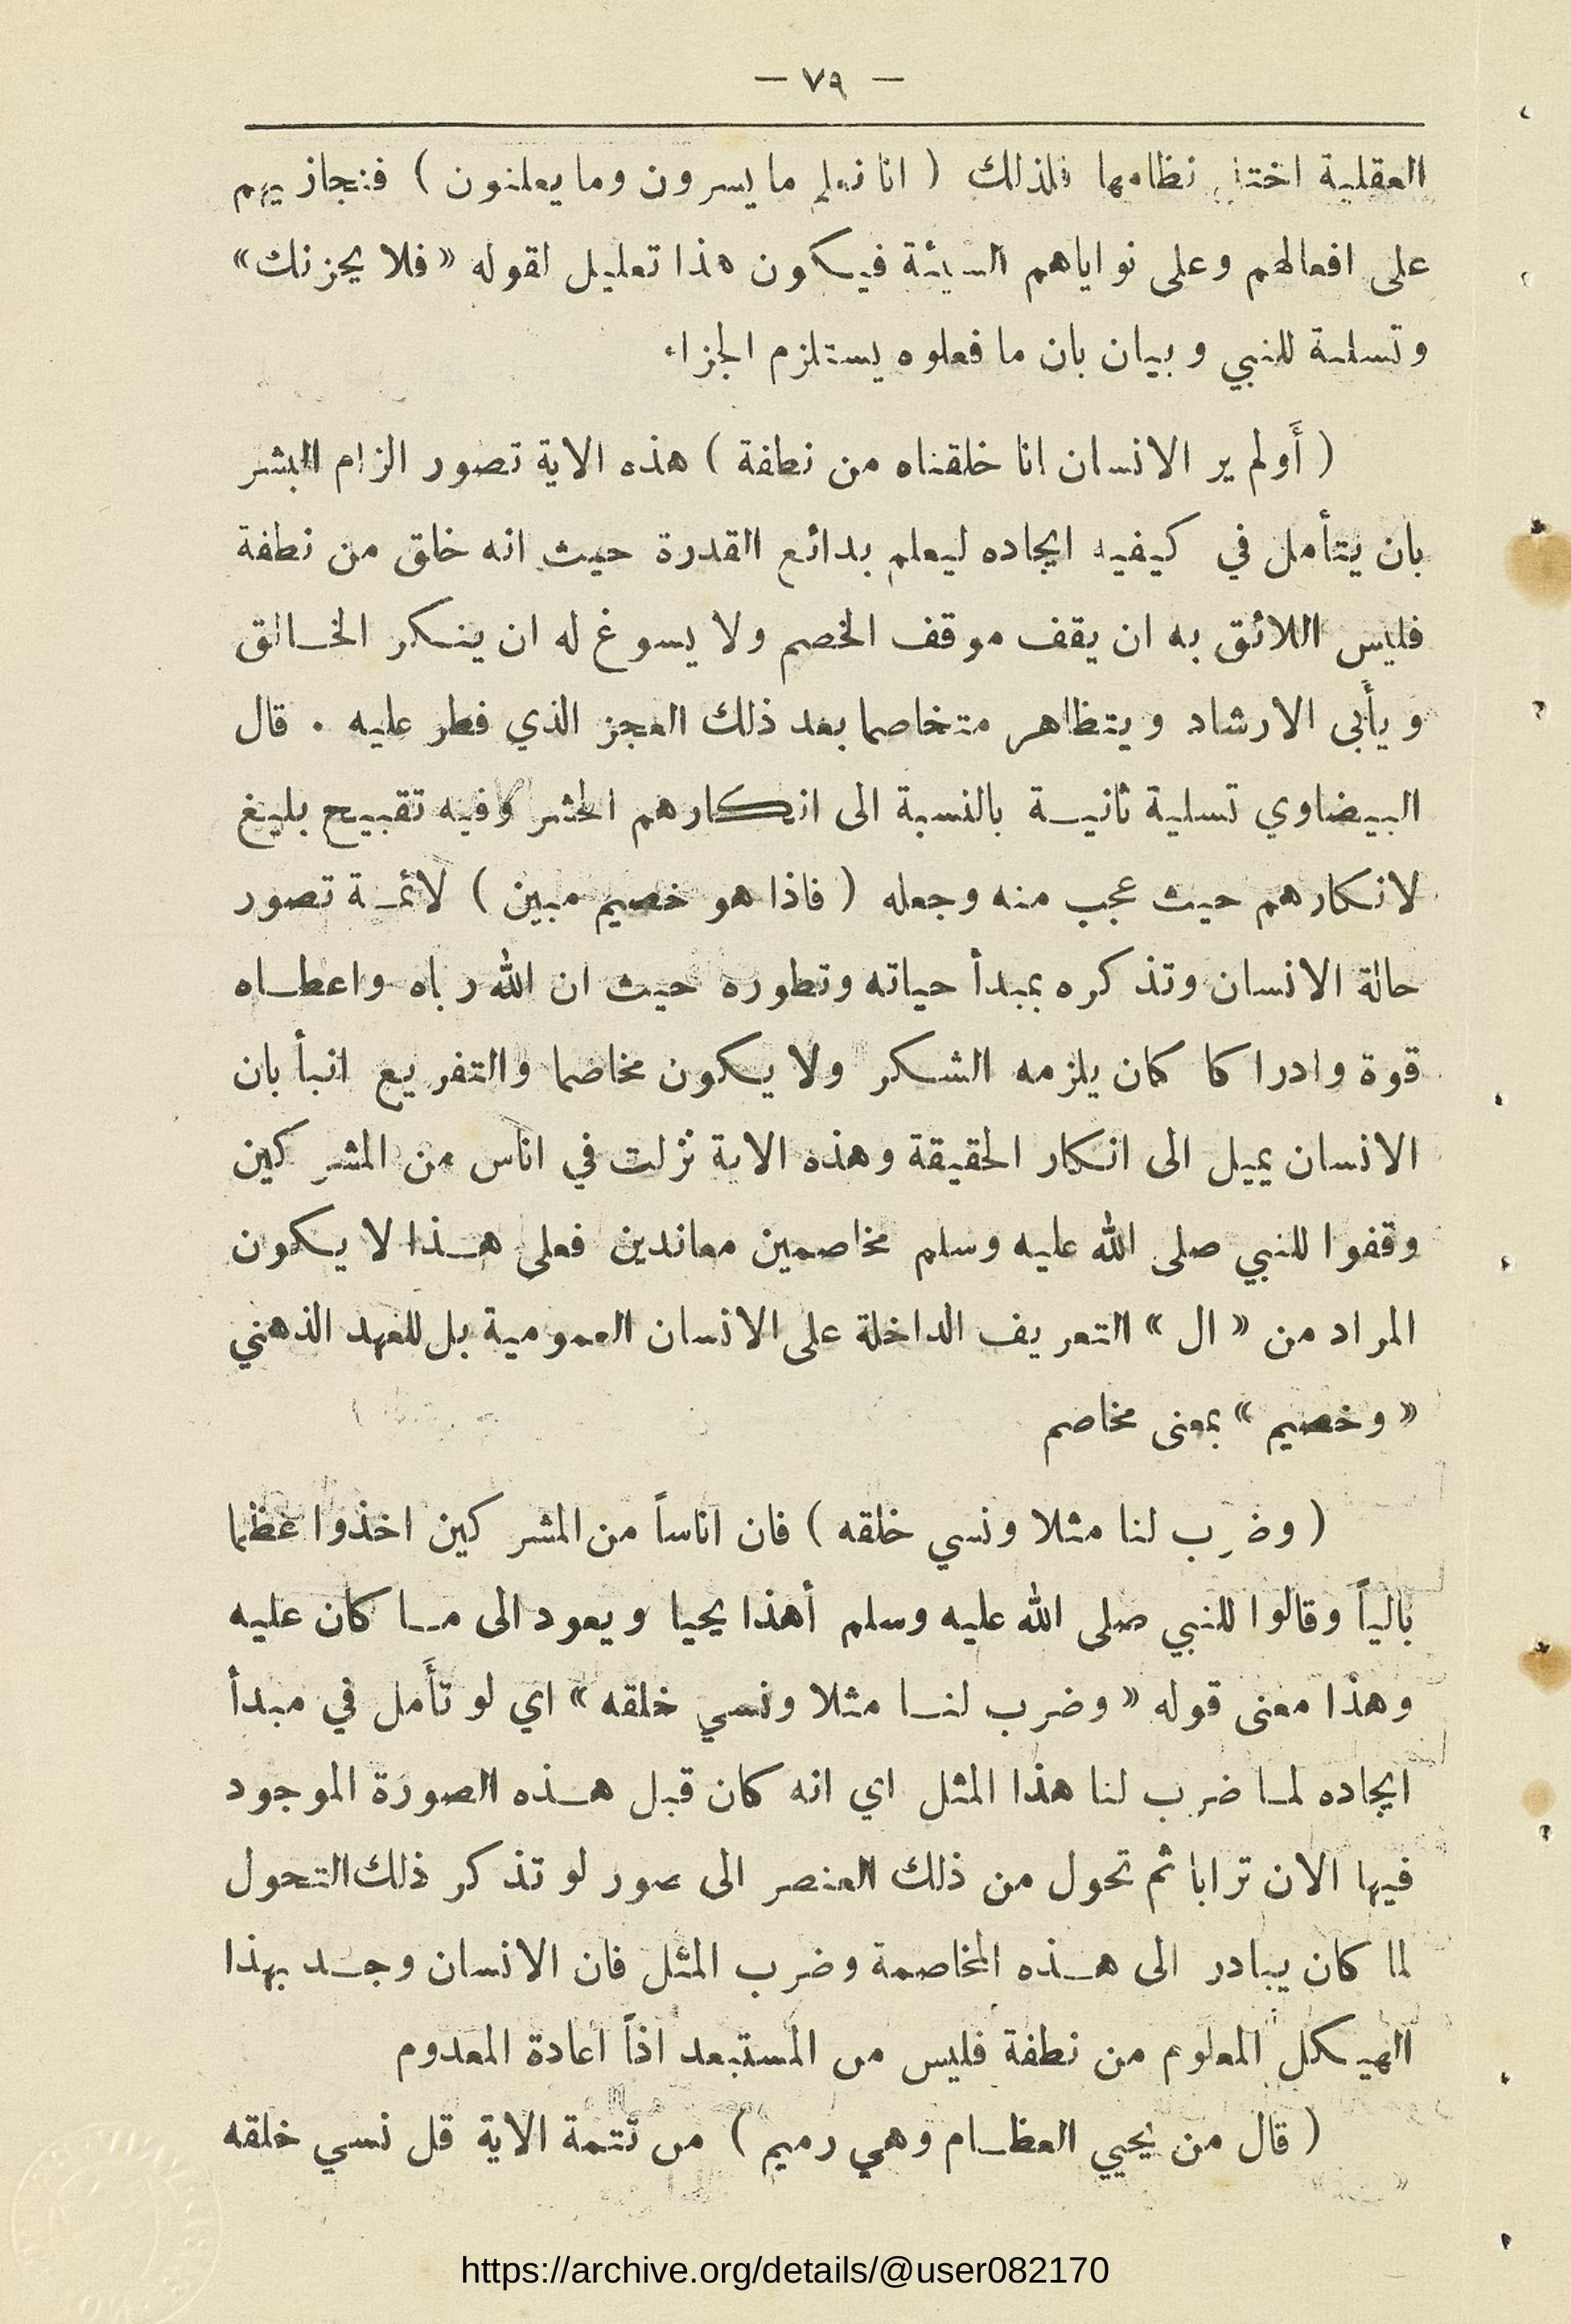 — ٧٩ —
العقلية اختل نظامها فلذلك ( انا نعلم ما يسرون وما يعلنون ) فنجازيهم
على افعالهم وعلى نواياهم السيئة فيكون هذا تعليل لقوله « فلا يحزنك »
وتسلية للنبي وبيان بان ما فعلوه يستلزم الجزاء
( أَولم ير الانسان انا خلقناه من نطفة ) هذه الاية تصور الزام البشر
بان يتأمل في كيفيه ايجاده ليعلم بدائع القدرة حيث انه خلق من نطفة
فليس اللائق به ان يقف موقف الخصم ولا يسوغ له ان ينكر الخالق
ويأَبى الارشاد ويتظاهر متخاصما بعد ذلك العجز الذي فطر عليه . قال
البيضاوي تسلية ثانية بالنسبة الى انكارهم الحشر وفيه تقبيح بليغ
لانكارهم حيث عجب منه وجعله ( فاذا هو خصيم مبين ) لائمة تصور
حالة الانسان وتذكره بمبدأ حياته وتطوره حيث ان الله رباه واعطاه
قوة وادراكا كان يلزمه الشكر ولا يكون مخاصما والتفريع انبأ بان
الانسان يميل الى انكار الحقيقة وهذه الاية نزلت في اناس من المشركين
وقفوا للنبي صلى الله عليه وسلم مخاصمين معاندين فعلى هذا لا يكون
المراد من « ال » التعريف الداخلة على الانسان العمومية بل للعهد الذهني
« وخصيم » بمعنى مخاصم
( وضرب لنا مثلا ونسي خلقه ) فان اناساً من المشركين اخذوا عظما
بالياً وقالوا للنبي صلى الله عليه وسلم أهذا يحيا ويعود الى ما كان عليه
وهذا معنى قوله « وضرب لنا مثلا ونسي خلقه » اي لو تأَمل في مبدأ
ايجاده لما ضرب لنا هذا المثل اي انه كان قبل هذه الصورة الموجود
فيها الان ترابا ثم تحول من ذلك العنصر الى صور لو تذكر ذلك التحول
لما كان يبادر الى هذه المخاصمة وضرب المثل فان الانسان وجد بهذا
الهيكل المعلوم من نطفة فليس من المستبعد اذاً اعادة المعدوم
( قال من يحيي العظام وهي رميم ) من تتمة الاية قل نسي خلقه
https://archive.org/details/@user082170